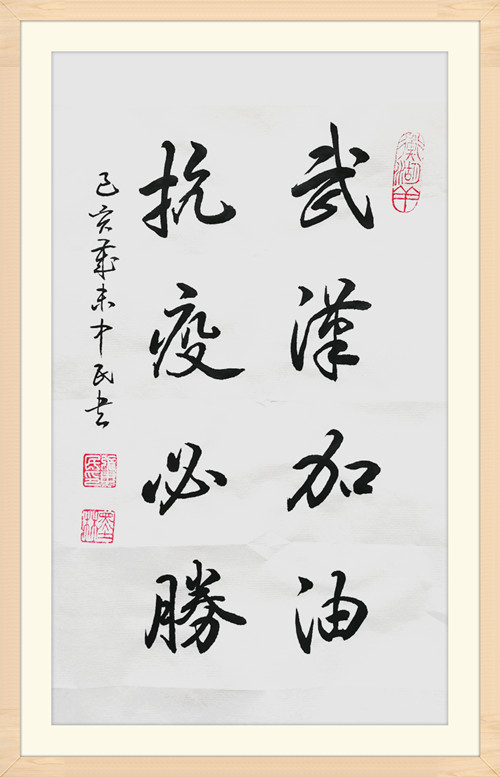 武漢加油
抗疫必勝
己亥歲末中民书